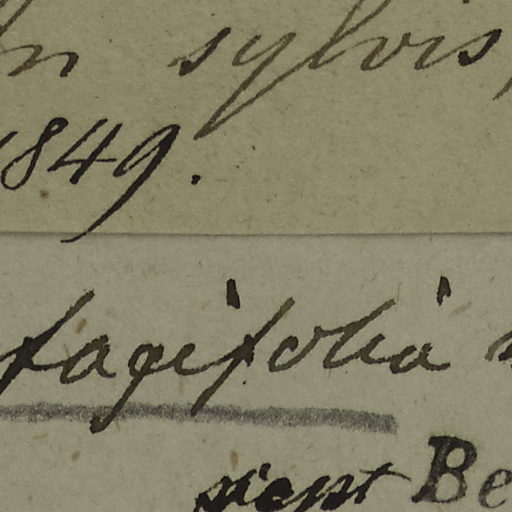 In sylvis,
1849.
fagifolia
sient Be